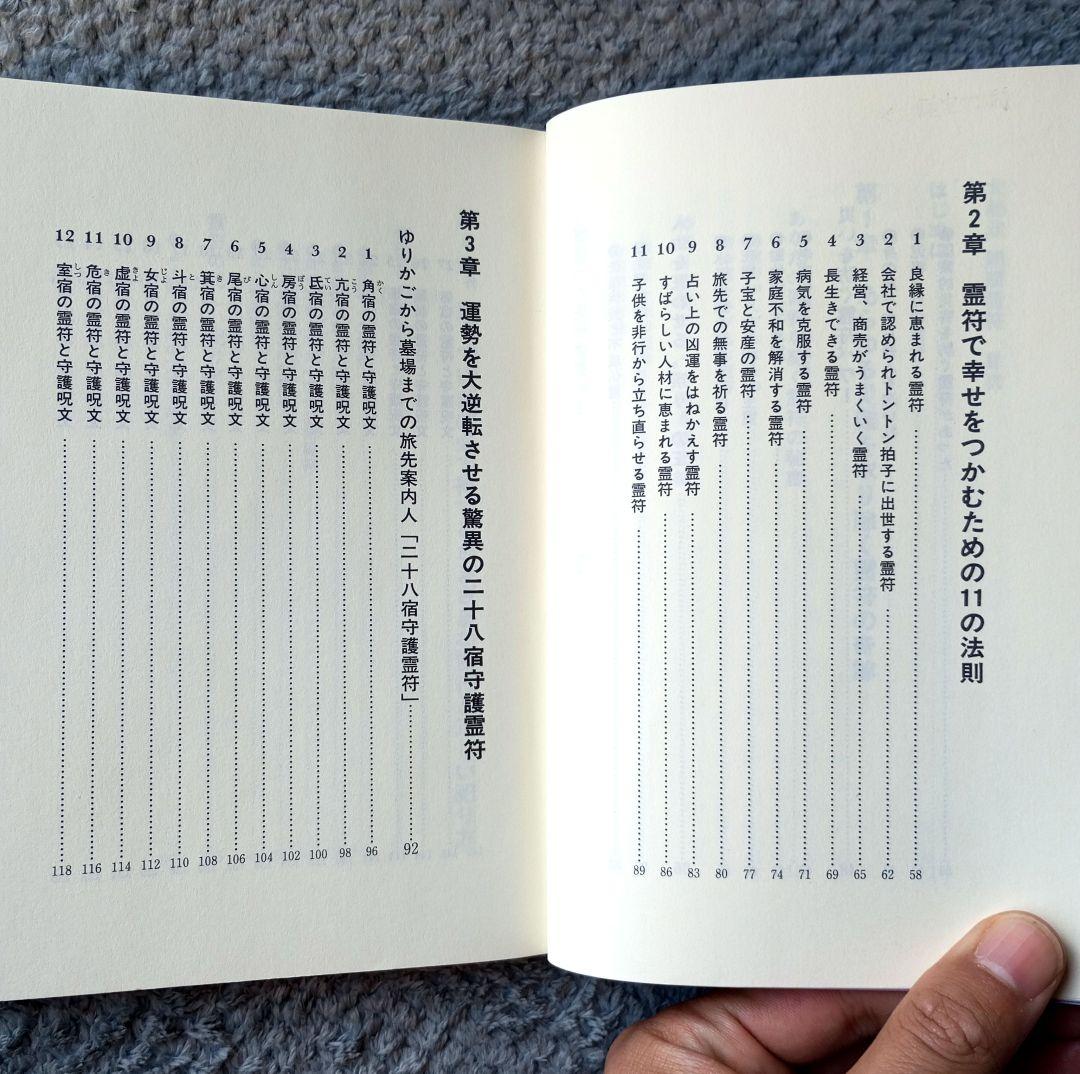 第2章 霊符で幸せをつかむための11の法則
1 良縁に恵まれる霊符 58
2 会社で認められトントン拍子に出世する霊符 62
3 経営、商売がうまくいく霊符 65
4 長生きできる霊符 69
5 病気を克服する霊符 71
6 家庭不和を解消する霊符 74
7 子宝と安産の霊符 77
8 旅先での無事を祈る霊符 80
9 占い上の凶運をはねかえす霊符 83
10 すばらしい人材に恵まれる霊符 86
11 子供を非行から立ち直らせる霊符 89
第3章 運勢を大逆転させる驚異の二十八宿守護霊符
ゆりかごから墓場までの旅先案内人「二十八宿守護霊符」 92
1 角宿の霊符と守護呪文 96
2 亢宿の霊符と守護呪文 98
3 氐宿の霊符と守護呪文 100
4 房宿の霊符と守護呪文 102
5 心宿の霊符と守護呪文 104
6 尾宿の霊符と守護呪文 106
7 箕宿の霊符と守護呪文 108
8 斗宿の霊符と守護呪文 110
9 女宿の霊符と守護呪文 112
10 虚宿の霊符と守護呪文 114
11 危宿の霊符と守護呪文 116
12 室宿の霊符と守護呪文 118